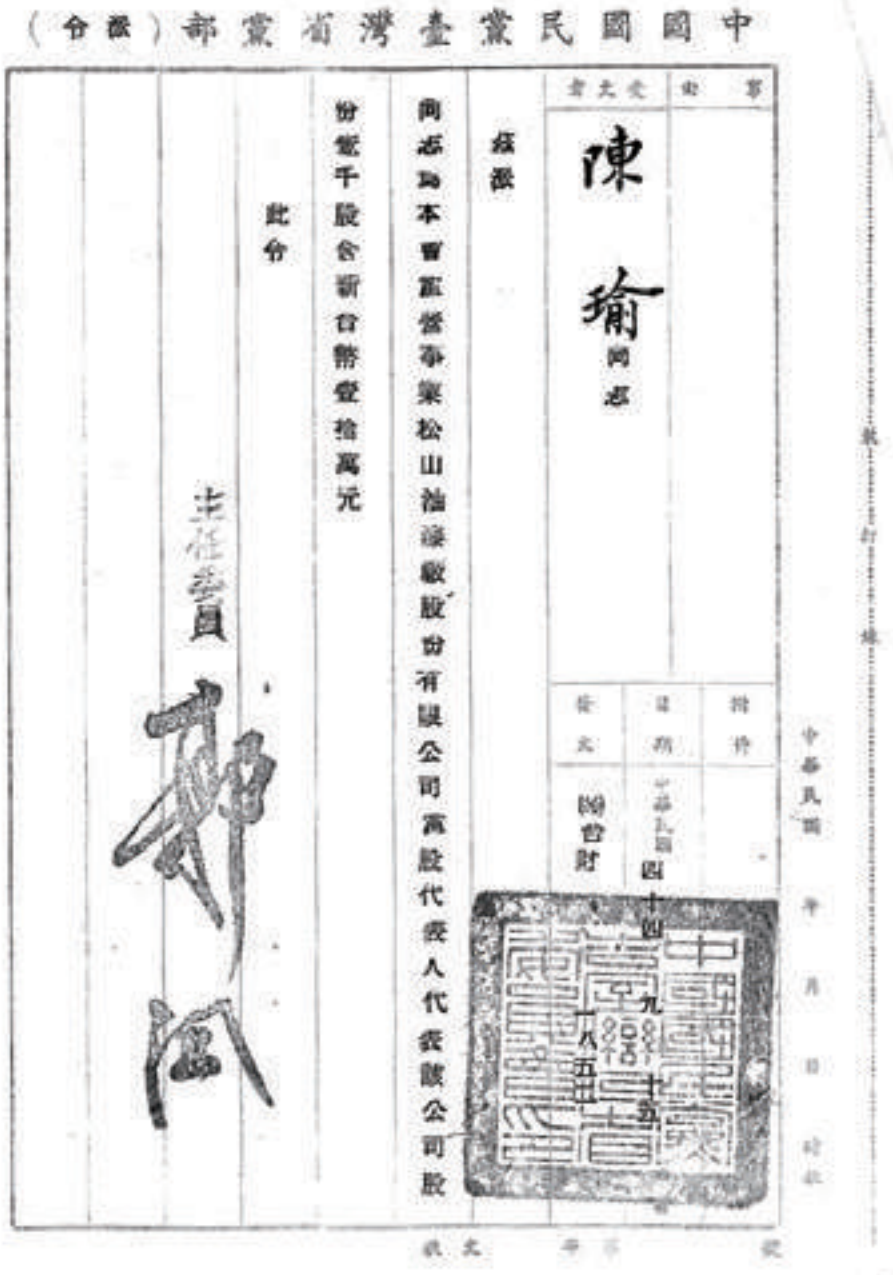 中國國民黨臺灣省黨部(派令)
事由
受文者
陳瑜同志
附件
日期
中華民國四十四 九 十五
發文
台財
一八五
茲派
同志為本會黨營事業松山油漆廠股份有限公司黨股代表人代表該公司股
份壹千股合新台幣壹拾萬元
此令
主任委員
裝 訂 線
中華民國 年 月 日 時